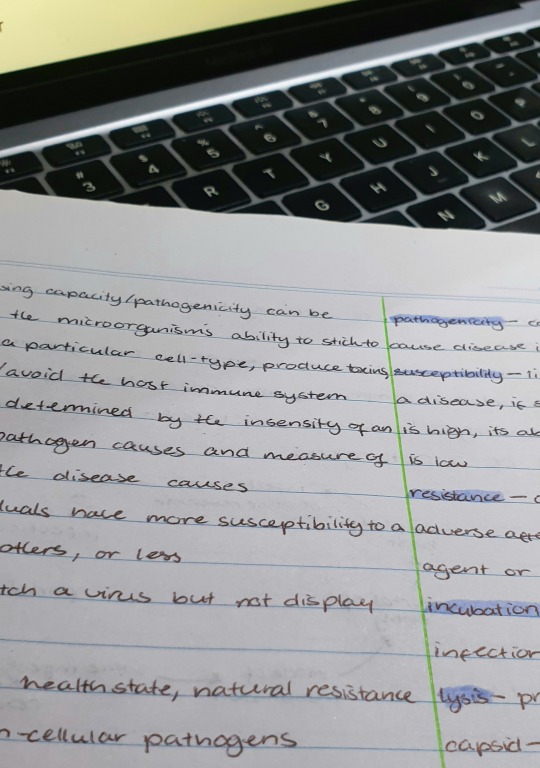 sing capacity/pathogenicity can be
the microorganism's ability to stick to
a particular cell-type, produce toxins,
/avoid the host immune system
determined by the insensity of an
pathogen causes and measure of
the disease causes
duals have more susceptibility to a
others, or less
tch a virus but not display
health state, natural resistance
n-cellular pathogens
pathogenicity - c
cause disease i
susceptibility - li
a disease, if s
is high, its ab
is low
resistance -
adverse
agent or
incubation
infection
lysis - pr
capsid -
# 3
$ 4
% 5
^ 6
& 7
* 8
( 9
) 0
R T Y U I O P
G H J K L
N M